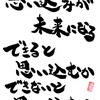 思い込みが
未来になる
できると
思い込むか
できないと
思い込むか